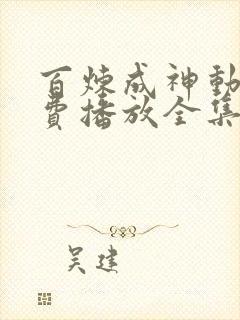 百炼成神动
费播放全集
吴建